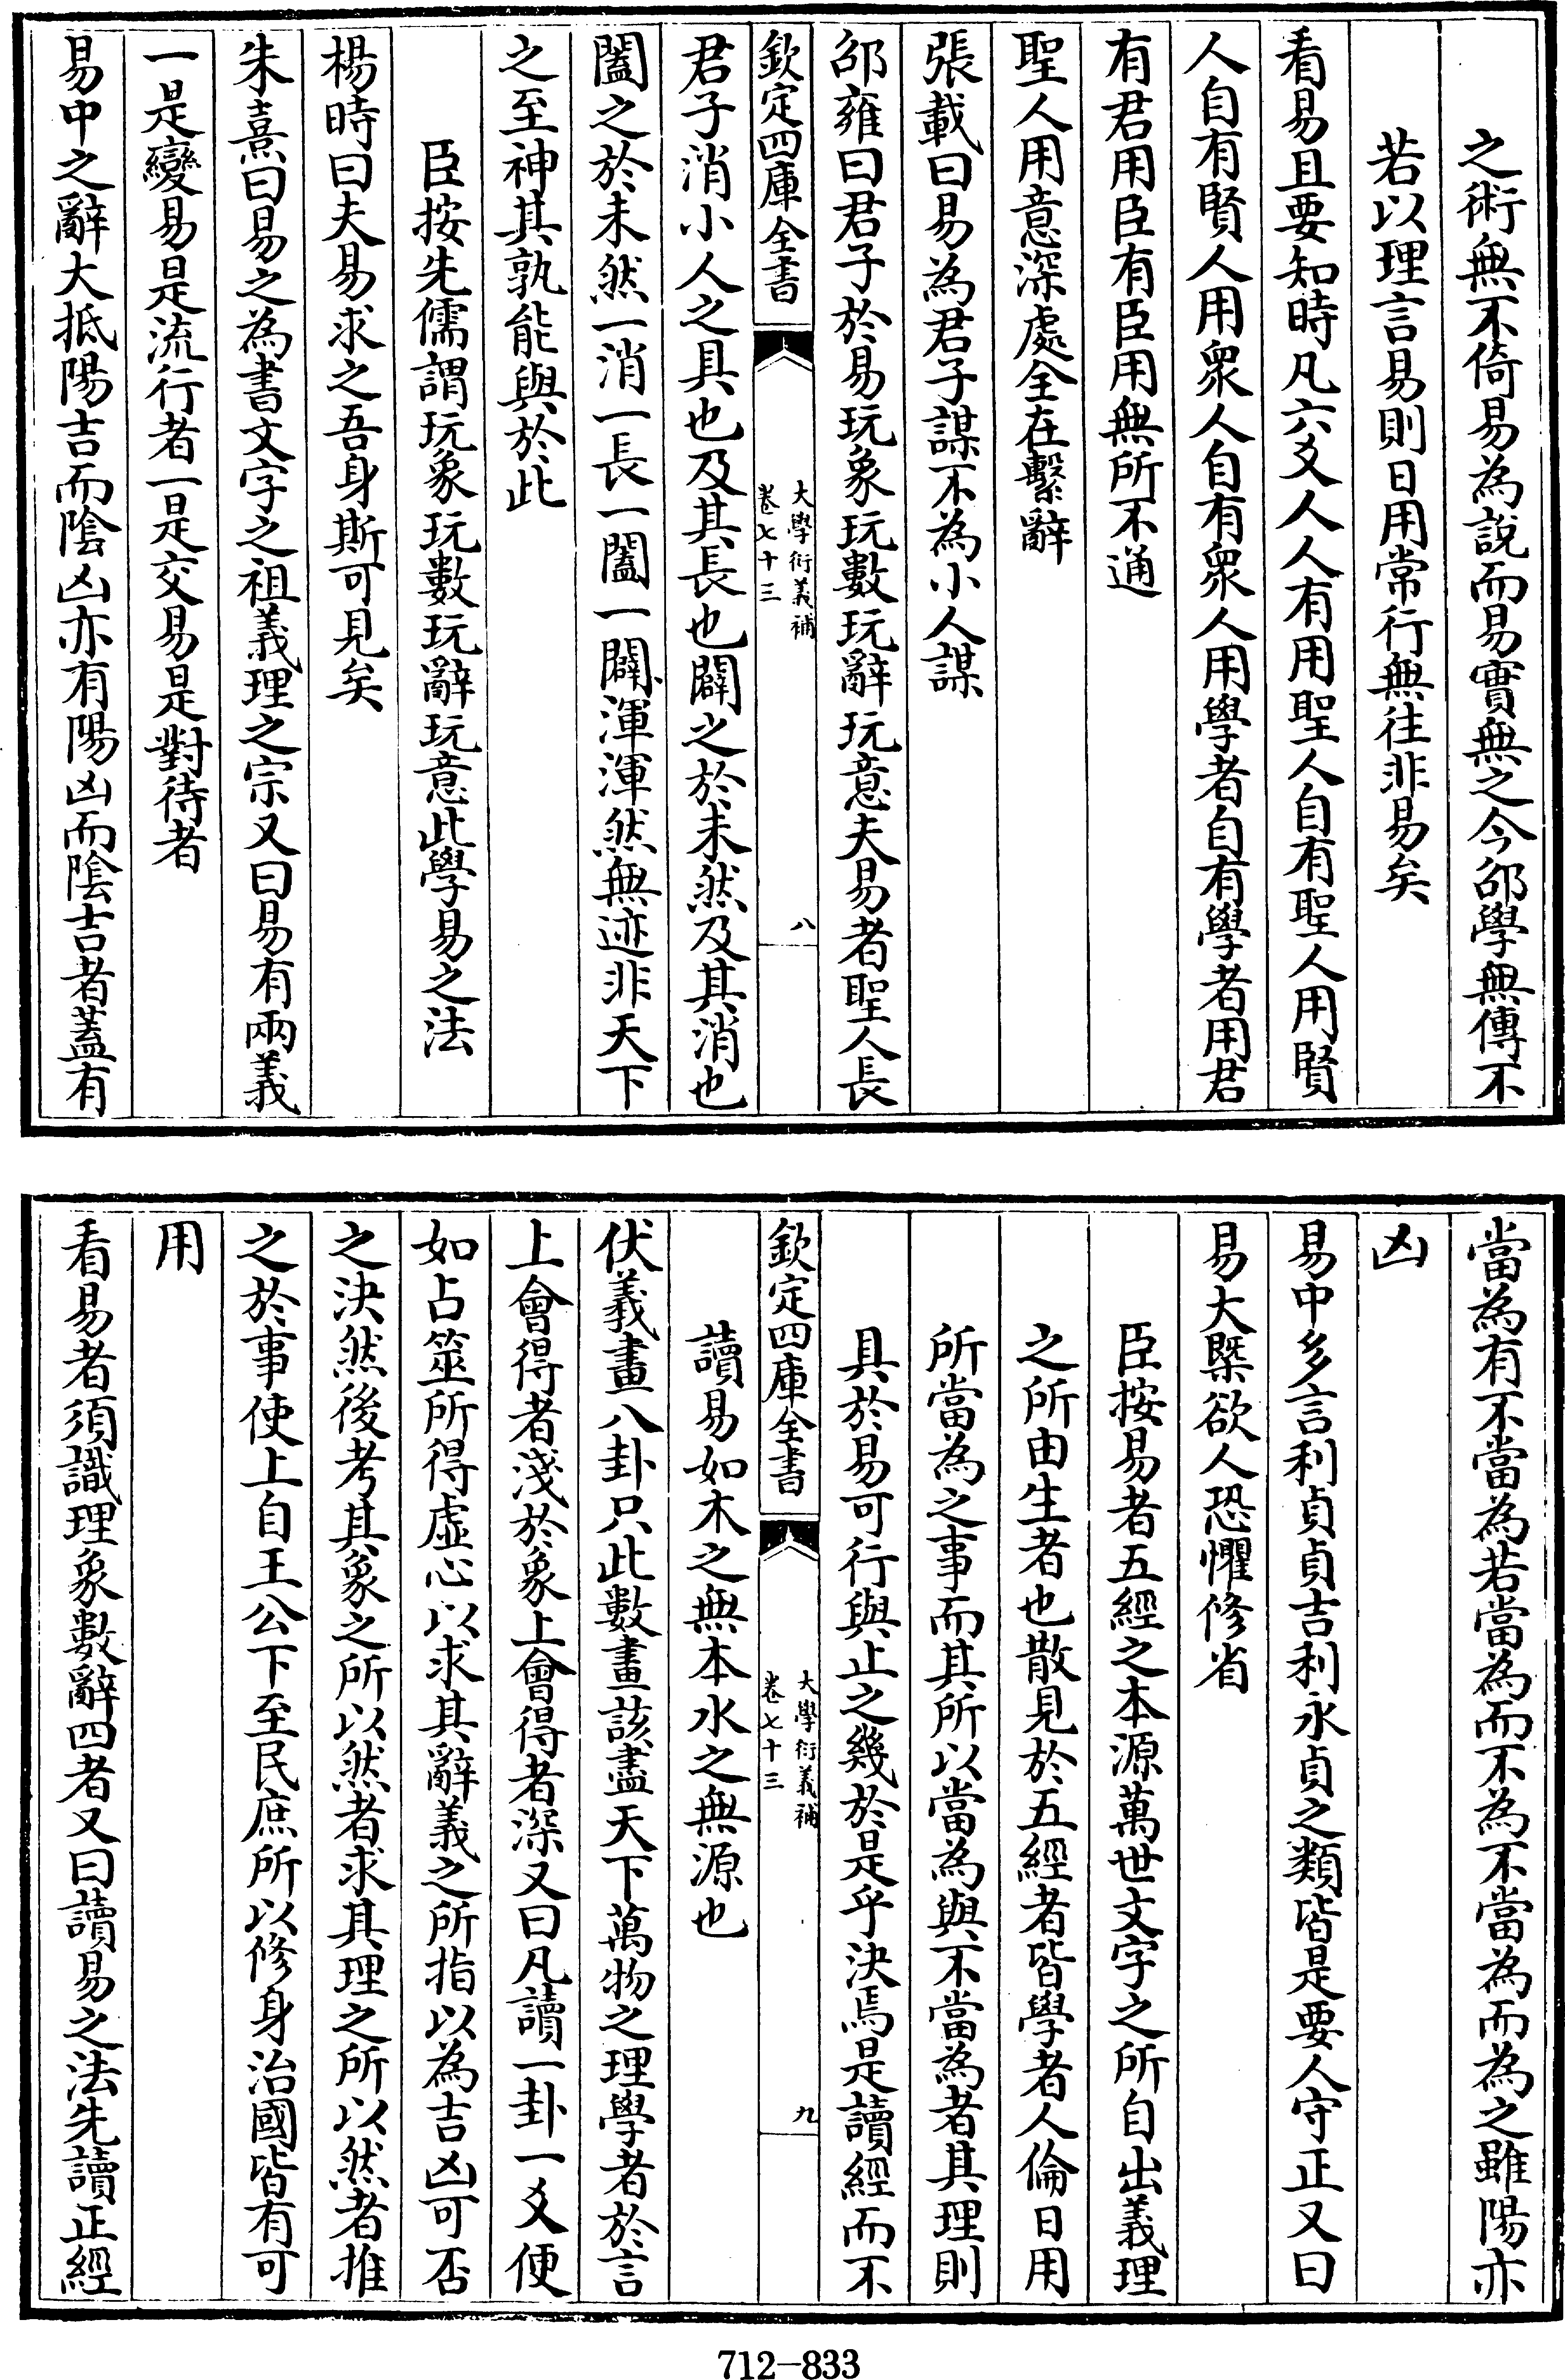 之術無不倚易為說而易實無之今邵學無傳不
若以理言易則日用常行無往非易矣
看易且要知時凡六爻人人有用聖人自有聖人用賢
人自有賢人用衆人自有衆人用學者自有學者用君
有君用臣有臣用無所不通
聖人用意深處全在繫辭
張載曰易為君子謀不為小人謀
邵雍曰君子於易玩象玩數玩辭玩意夫易者聖人長
欽定四庫全書
大學衍義補
卷七十三
八
君子消小人之具也及其長也闢之於未然及其消也
闔之於未然一消一長一闔一闢渾渾然無迹非天下
之至神其孰能與於此
臣按先儒謂玩象玩數玩辭玩意此學易之法
楊時曰夫易求之吾身斯可見矣
朱熹曰易之為書文字之祖義理之宗又曰易有兩義
一是變易是流行者一是交易是對待者
易中之辭大抵陽吉而陰凶亦有陽凶而陰吉者蓋有
當為有不當為若當為而不為不當為而為之雖陽亦
凶
易中多言利貞貞吉利永貞之類皆是要人守正又曰
易大槩欲人恐懼修省
臣按易者五經之本源萬世文字之所自出義理
之所由生者也散見於五經者皆學者人倫日用
所當為之事而其所以當為與不當為者其理則
具於易可行與止之幾於是乎決焉是讀經而不
欽定四庫全書
大學衍義補
卷七十三
九
讀易如木之無本水之無源也
伏羲畫八卦只此數畫該盡天下萬物之理學者於言
上會得者淺於象上會得者深又曰凡讀一卦一爻便
如占筮所得虛心以求其辭義之所指以為吉凶可否
之決然後考其象之所以然者求其理之所以然者推
之於事使上自王公下至民庶所以修身治國皆有可
用
看易者須識理象數辭四者又曰讀易之法先讀正經
712-833